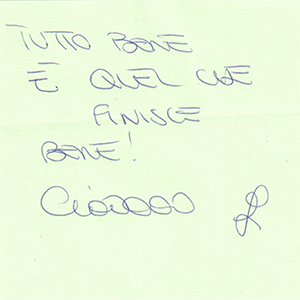 TUTTO BENE
È QUEL CHE
FINISCE
BENE!
Ciooooo